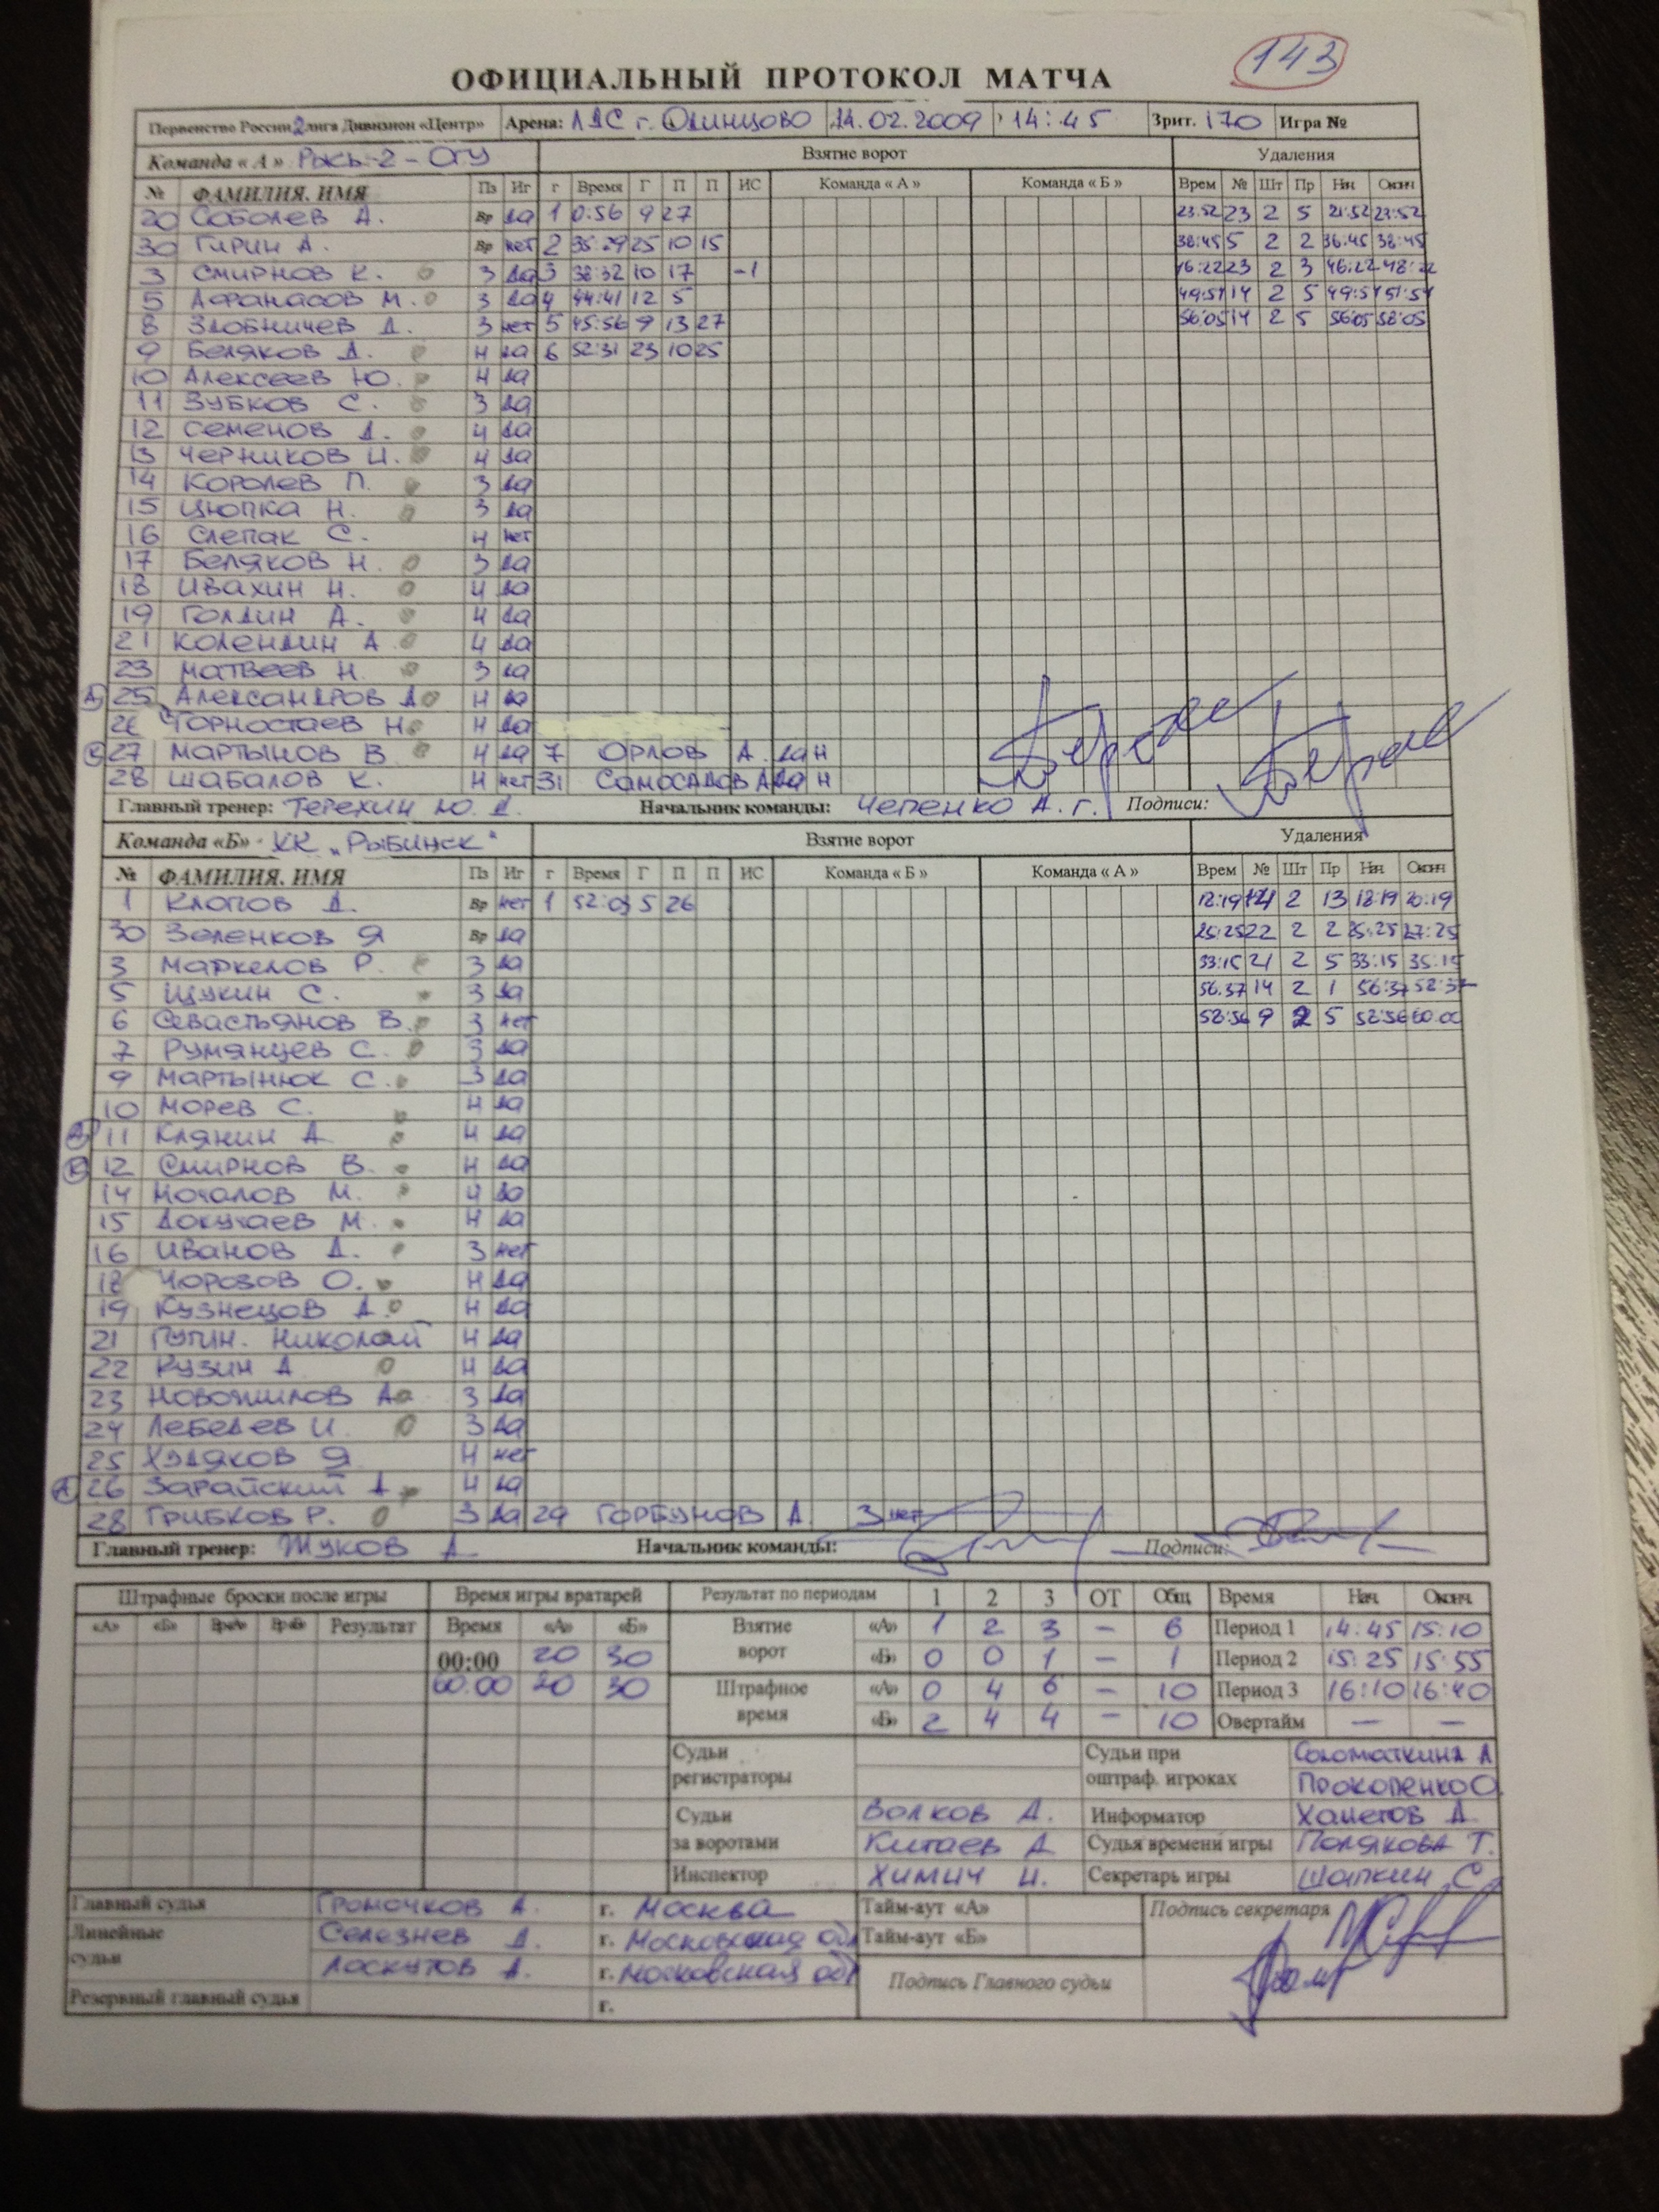 143
ОФИЦИАЛЬНЫЙ ПРОТОКОЛ МАТЧА
Первенство России 2 лига Дивизион «Центр» Арена: ЛДС г. Одинцово 14.02.2009 14:45 Зрит. 170 Игра №
Команда « А » Рысь-2-ОГУ Взятие ворот Удаления
№ ФАМИЛИЯ. ИМЯ Пз Иг г Время Г П П ИС Команда « А » Команда « Б » Врем № Шт Пр Нач Оконч
20 Соболев А. Вр да 1 0:56 9 27 23:52 23 2 5 21:52 23:52
30 Гирин А. Вр нет 2 35:29 25 10 15 38:45 5 2 2 36:45 38:45
3 Смирнов К. З да 3 38:32 10 17 -1 46:22 23 2 3 46:22 48:22
5 Афанасов М. З да 4 44:41 12 5 49:51 14 2 5 49:51 51:51
8 Злобничев Д. З нет 5 45:56 9 13 27 56:05 14 2 5 56:05 58:05
9 Беляков Д. Н да 6 52:31 23 10 25
10 Алексеев Ю. Н да
11 Зубков С. З да
12 Семенов Д. Н да
13 Черников И. Н да
14 Королев П. З да
15 Цнопка Н. З да
16 Слепак С. Н нет
17 Беляков Н. З да
18 Ивахин Н. Н да
19 Голдин А. Н да
21 Колендин А Н да
23 Матвеев Н. З да
А 25 Александров Д Н да
26 Горностаев Н Н да
К 27 Мартынов В. Н да 7 Орлов А. да Н
28 Шабалов К. Н нет 31 Самосадов А да Н
Главный тренер: Терехин Ю. Д. Начальник команды: Чепенко А. Г. Подписи:
Команда «Б» ХК „Рыбинск" Взятие ворот Удаления
№ ФАМИЛИЯ. ИМЯ Пз Иг г Время Г П П ИС Команда « Б » Команда « А » Врем № Шт Пр Нач Оконч
1 Клопов Д. Вр нет 1 52:03 5 26 18:19 14 2 13 18:19 20:19
30 Зеленков Я Вр да 25:25 22 2 2 25:25 27:25
3 Маркелов Р. З да 33:15 21 2 5 33:15 35:15
5 Щукин С. З да 56:37 14 2 1 56:37 58:37
6 Севастьянов В. З нет 58:56 9 2 5 58:56 60:00
7 Румянцев С. З да
9 Мартынюк С. З да
10 Морев С. Н да
А 11 Клянин А Н да
К 12 Смирнов В. Н да
14 Мочалов М. Н да
15 Докучаев М. Н да
16 Иванов Д. З нет
18 Морозов О. Н да
19 Кузнецов Д. Н да
21 Пугин. Николай Н да
22 Рузин А Н да
23 Новожилов А З да
24 Лебедев И З да
25 Худяков Я Н нет
А 26 Зарайский А Н да
28 Грибков Р. З да 29 Горбунов А. З нет
Главный тренер: Жуков А Начальник команды: Подписи:
Штрафные броски после игры Время игры вратарей Результат по периодам 1 2 3 ОТ Общ Время Нач Оконч
«А» «Б» ВрА ВрБ Результат Время «А» «Б» Взятие ворот «А» 1 2 3 – 6 Период 1 14:45 15:10
00:00 20 30 «Б» 0 0 1 – 1 Период 2 15:25 15:55
60:00 20 30 Штрафное время «А» 0 4 6 – 10 Период 3 16:10 16:40
«Б» 2 4 4 – 10 Овертайм — —
Судьи регистраторы Судьи при оштраф. игроках Соломаткина А
Прокопенко О.
Судьи за воротами Волков А. Информатор Ханетов Д
Китаев А Судья времени игры Полякова Т.
Инспектор Химич И. Секретарь игры Шапкин С.
Главный судья Громочков А. г. Москва Тайм-аут «А» Подпись секретаря
Линейные судьи Селезнев Д. г. Московская обл Тайм-аут «Б»
Лоскутов А. г. Московская обл Подпись Главного судьи
Резервный главный судья г.